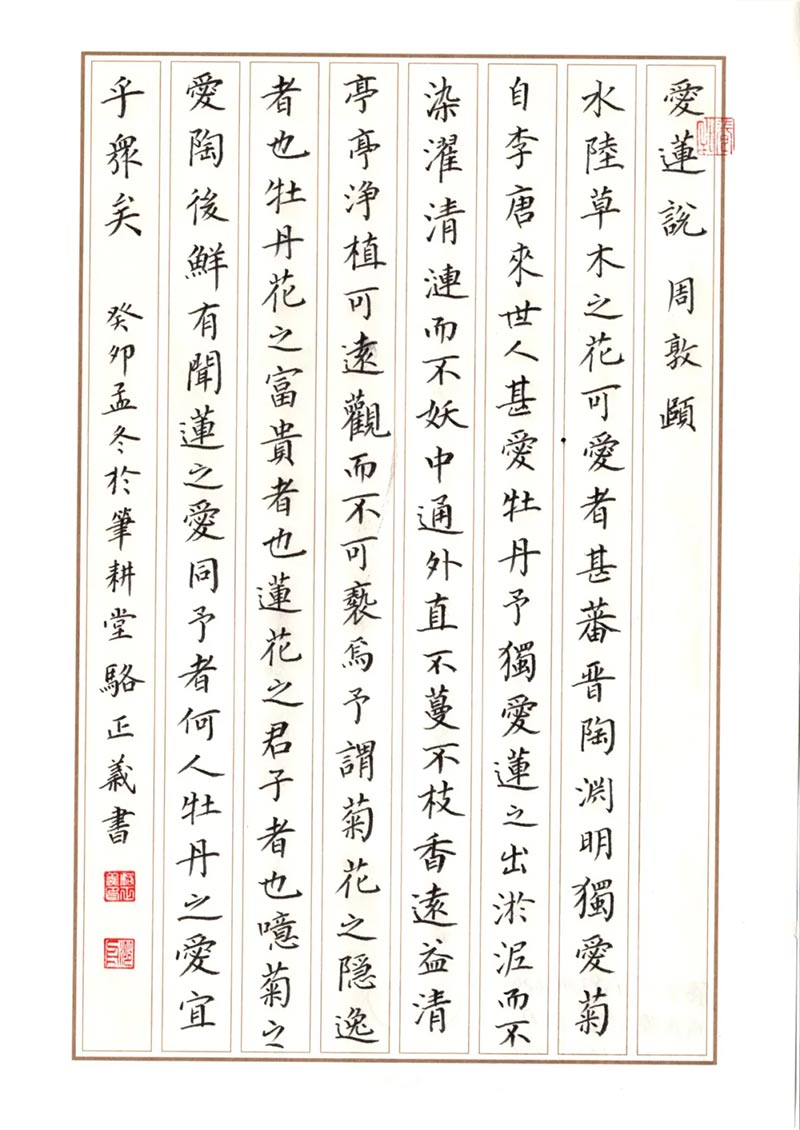 愛蓮說 周敦頤
水陸草木之花可愛者甚蕃晋陶渊明獨愛菊
自李唐來世人甚愛牡丹予獨愛蓮之出淤泥而不
染濯清漣而不妖中通外直不蔓不枝香遠益清
亭亭浄植可遠觀而不可褻焉予謂菊花之隱逸
者也牡丹花之富貴者也蓮花之君子者也噫菊之
愛陶後鮮有聞蓮之愛同予者何人牡丹之愛宜
乎衆矣 癸卯孟冬於筆耕堂駱正義書